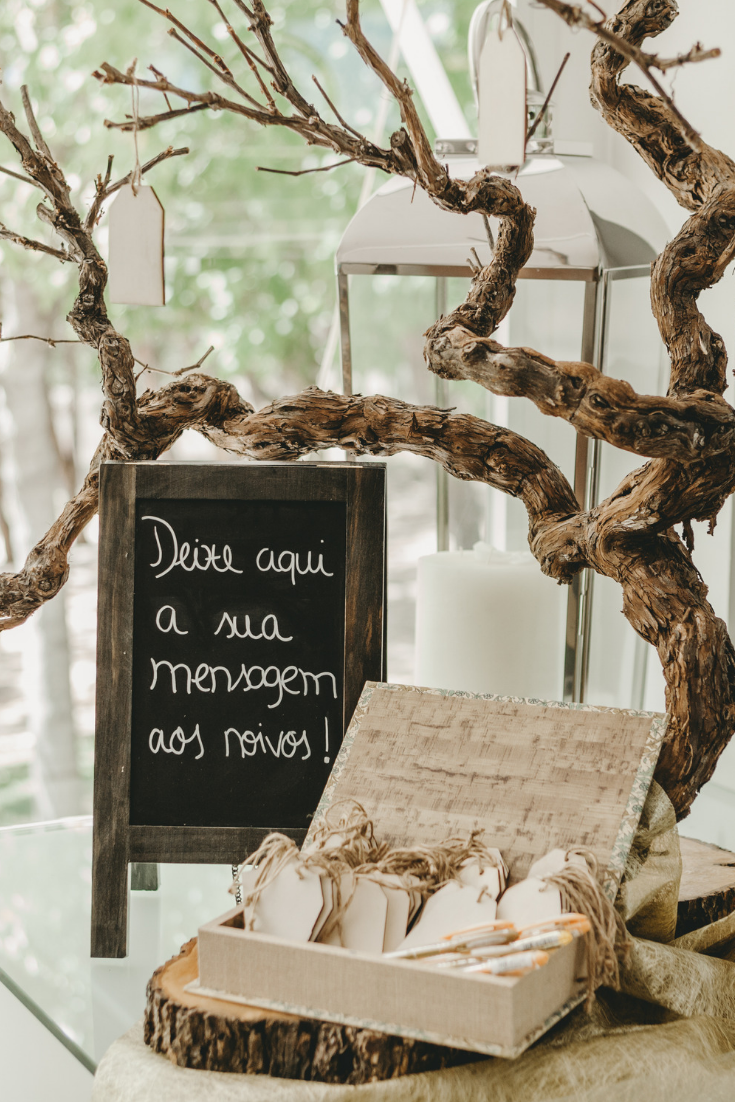 Deixe aqui
a sua
mensagem
aos noivos!